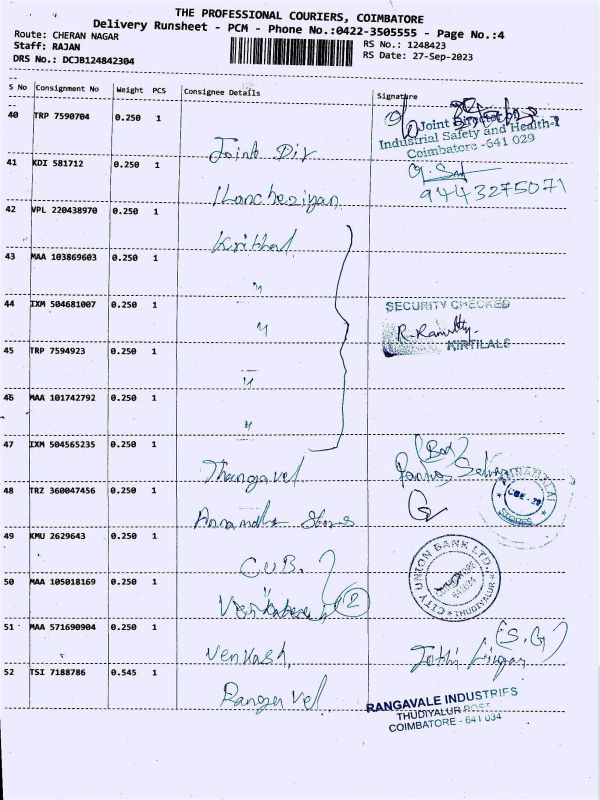 THE PROFESSIONAL COURIERS, COIMBATORE
Delivery Runsheet - PCM - Phone No.:0422-3505555 - Page No.:4
Route: CHERAN NAGAR
RS No.: 1248423
Staff: RAJAN
RS Date: 27-Sep-2023
DRS No.: DCJB124842304
S No Consignment No Weight PCS Consignee Details Signature
40 TRP 7590704 0.250 1
Joint Dir
Joint Director
Industrial Safety and Health-I
Coimbatore -641 029
41 KDI 581712 0.250 1
9443275071
42 VPL 220438970 0.250 1
43 MAA 103869603 0.250 1
"
44 IXM 504681007 0.250 1
"
SECURITY CHECKED
KIRTILALS
45 TRP 7594923 0.250 1
"
46 MAA 101742792 0.250 1
"
47 IXM 504565235 0.250 1
Thangavel
48 TRZ 360047456 0.250 1
Stores
STORES
49 KMU 2629643 0.250 1
C.U.B.
CITY UNION BANK LTD.,
THUDIYALUR
50 MAA 105018169 0.250 1
2
51 MAA 571690904 0.250 1
Venkash,
(S.G)
Jothi Lingam
52 TSI 7188786 0.545 1
Rangavel
RANGAVALE INDUSTRIES
THUDIYALUR POST
COIMBATORE - 641 034